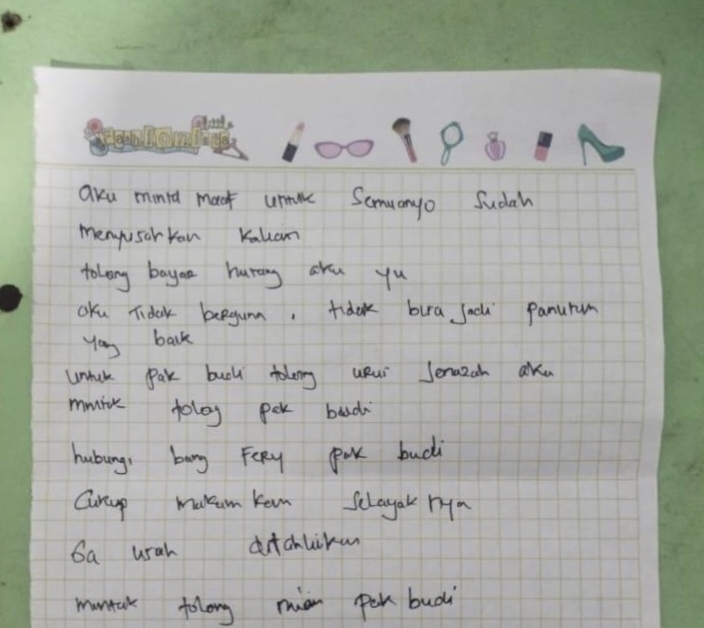 aku minta maaf untuk Semuanyo Sudah
menyusahkan kalian
tolong bayar hutang aku yu
aku Tidak berguna, tidak bisa jadi panutun
yang baik
untuk pak budi tolong urus Jenazah aku
mintak tolog pak budi
hubungi bang FERY pak budi
Cukup makamkan Selayaknya
Ga usah
mintak tolong nian pak budi